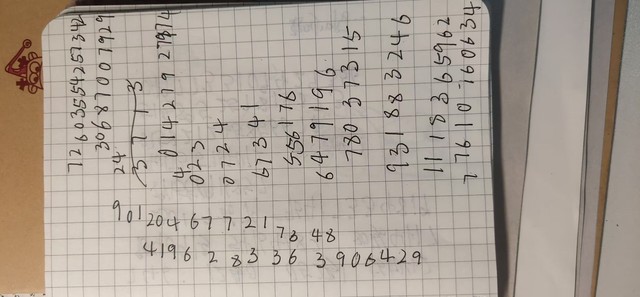 7260355425734
306870079 29
24
3713
4 014279 27974
023
0724
67341
556176
6479196
780 37315
931883246
11 18365962
77610 160634
901204 67 7 21 78 48
4196 2 83 36 3906429